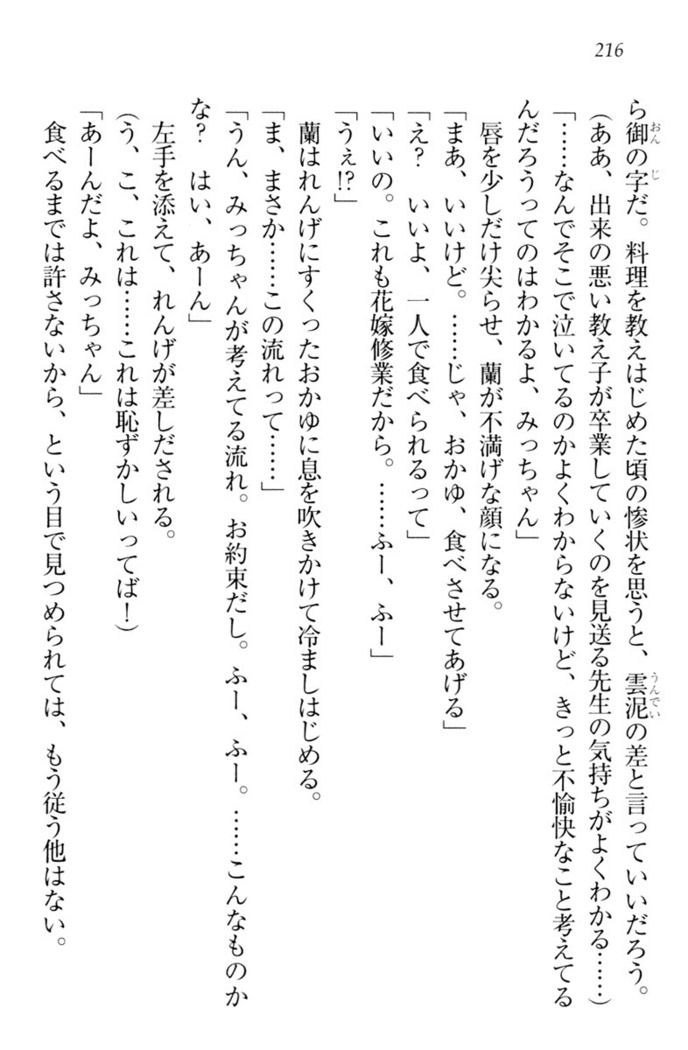 216
ら御の字だ。料理を教えはじめた頃の惨状を思うと、雲泥の差と言っていいだろう。
（ああ、出来の悪い教え子が卒業していくのを見送る先生の気持ちがよくわかる……）
「……なんでそこで泣いてるのかよくわからないけど、きっと不愉快なこと考えてる
んだろうってのはわかるよ、みっちゃん」
唇を少しだけ尖らせ、蘭が不満げな顔になる。
「まあ、いいけど。……じゃ、おかゆ、食べさせてあげる」
「え？　いいよ、一人で食べられるって」
「いいの。これも花嫁修業だから。……ふー、ふー」
「うぇ!?」
蘭はれんげにすくったおかゆに息を吹きかけて冷ましはじめる。
「ま、まさか……この流れって……」
「うん、みっちゃんが考えてる流れ。お約束だし。ふー、ふー。……こんなものか
な？　はい、あーん」
左手を添えて、れんげが差しだされる。
（う、こ、これは……これは恥ずかしいってば！）
「あーんだよ、みっちゃん」
食べるまでは許さないから、という目で見つめられては、もう従う他はない。